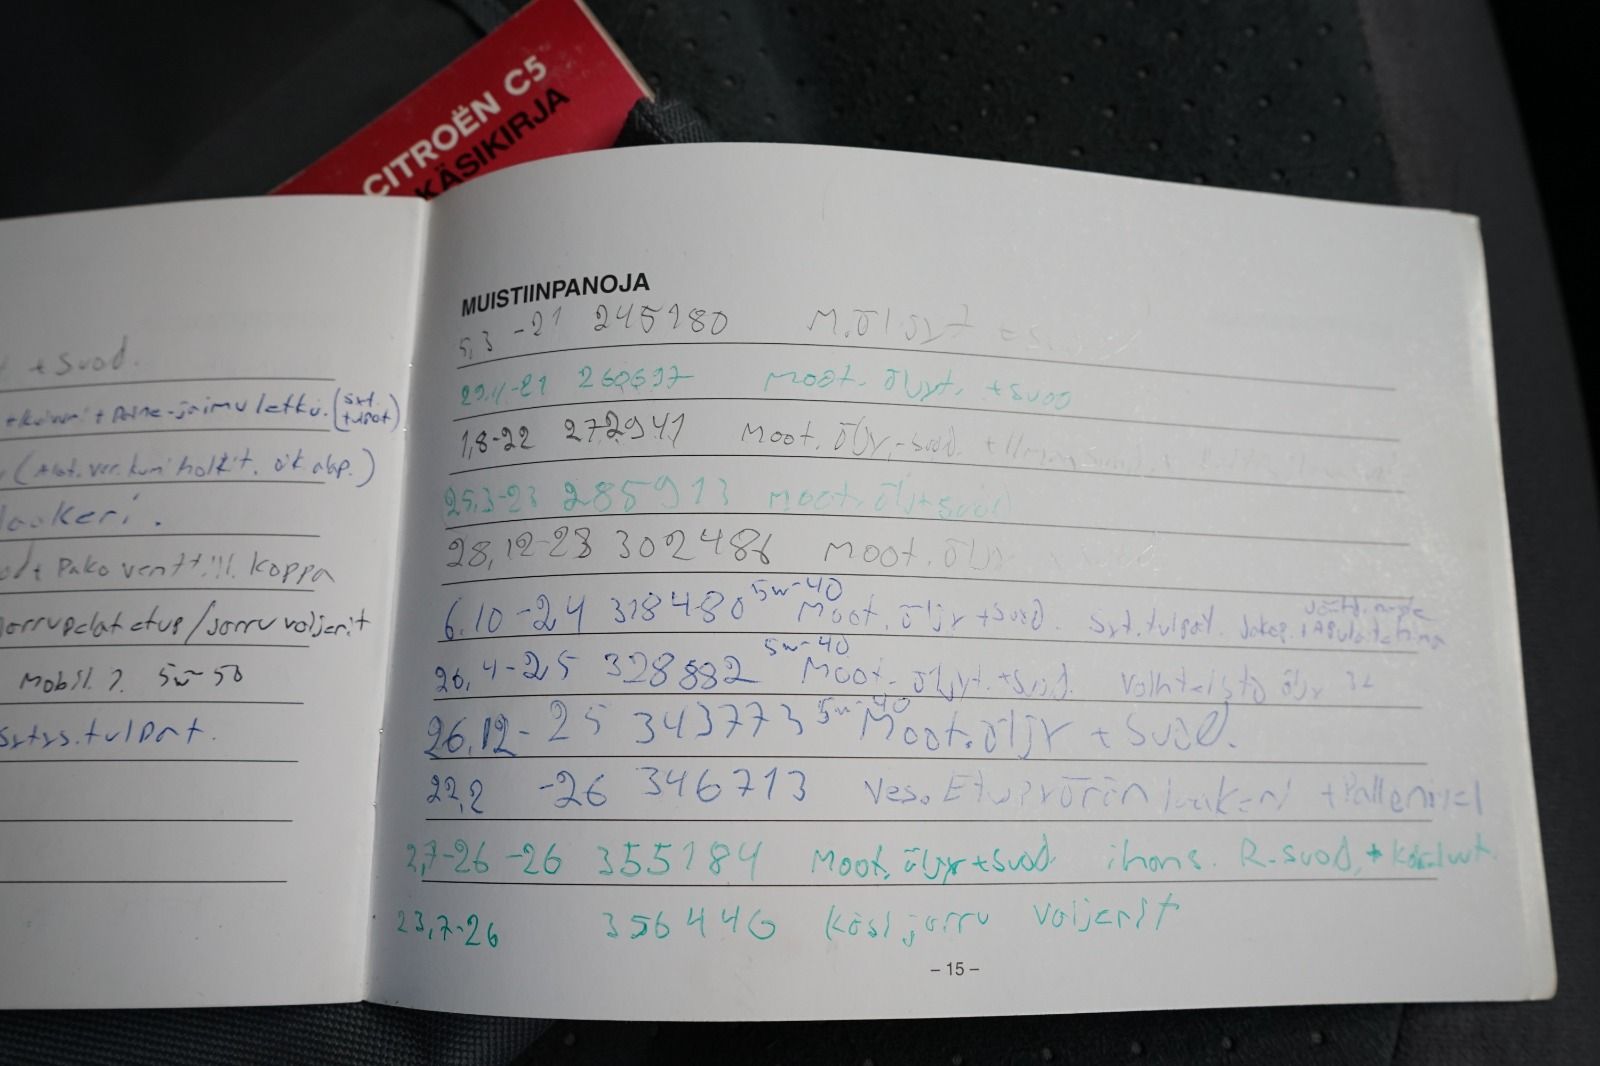 CITROËN C5
KÄSIKIRJA
+ Suod.
+ Paine-jaimu letku. (syt. tulpat)
(Alat. ver. kumi holkit. oik alap.)
laakeri.
Pako ventt.ill. koppa
Jarrupalat etup/Jarru vaijerit
Mobil. 5w-50
Sytys.tulpat.
MUISTIINPANOJA
5,3 -21 245180 M.Öljyt
260697 Moot. Öljyt. +suod
1,8-22 272941 Moot. Öljy,-suod.
25,3-23 285913 Moot. Öljy+suod
28,12-23 302486 Moot. Öljy
6.10 -24 318480 5w-40 Moot. Öljy +suod. Syt.tulpat.
26,4-25 328882 5w-40 Moot. Öljyt.+suod. Vaihteisto öljy 3L
26,12-25 343773 5w-40 Moot.öljy + suod.
22,2 -26 346713 Ves. Etupyörän laakeri + Pallonivel
2,7-26 -26 355184 Moot. Öljy +suod ilmans. R-suod,+
23,7-26 356446 Käsijarru vaijerit
– 15 –